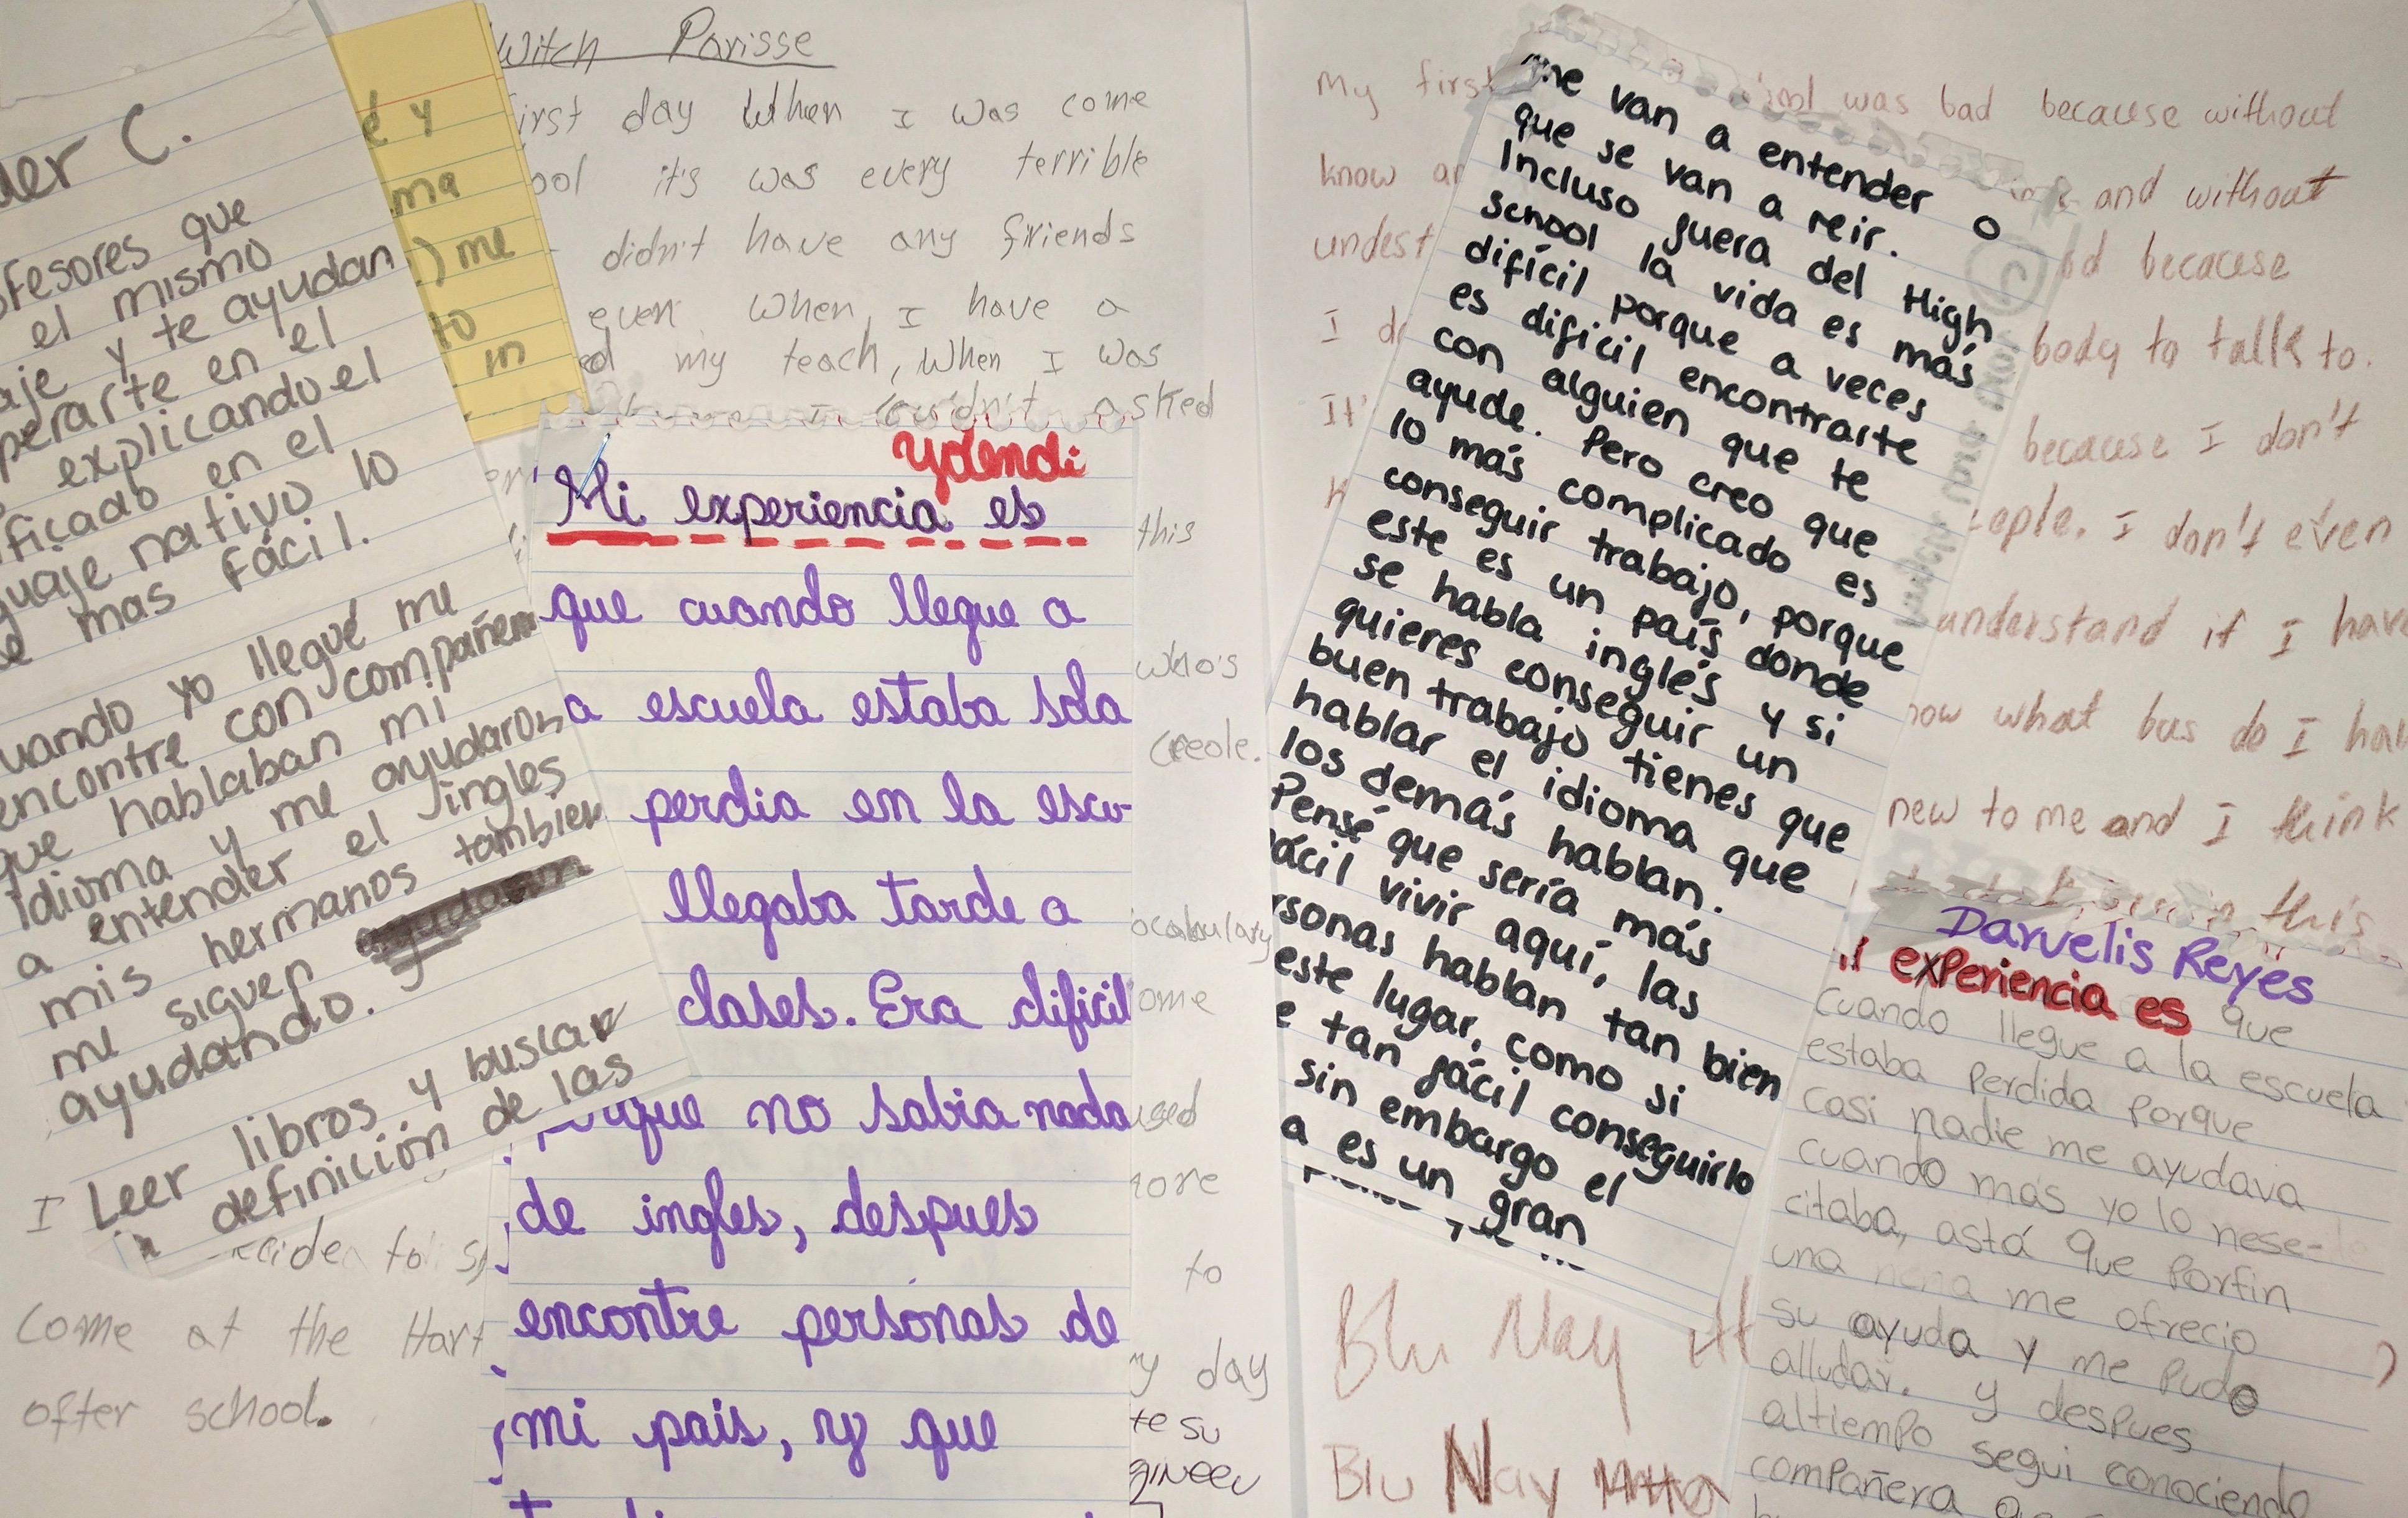 der C.
fesores que
el mismo
aje y te ayudan
perarte en el
explicando el
ficado en el
guaje nativo lo
e mas fácil.
uando yo llegué me
encontre con compañer
que hablaban mi
idioma y me ayudaron
a entender el ingles
mis hermanos tambien
me siguen
ayudando.
Leer libros y buscar
definición de las
d y
ma
) me
to
m
witch Parisse
irst day when I was come
ool it's was every terrible
didn't have any friends
even when I have a
ed my teach, when I was
I couldn't asked
this
who's
creole.
ocabulary
ome
used
more
to
my day
te su
gineeu
I
ciden to s
come at the Hart
after school.
ydendi
Mi experiencia es
que cuando llegue a
a escuela estaba sola
perdia en la escu-
llegaba tarde a
clases. Era dificil
rque no sabia nada
de ingles, despues
encontre personas de
mi pais, y que
me van a entender o
que se van a reir.
Incluso fuera del High
school la vida es más
difícil porque a veces
es dificil encontrarte
con alguien que te
ayude. Pero creo que
lo más complicado es
conseguir trabajo, porque
este es un país donde
se habla inglés y si
quieres conseguir un
buen trabajo tienes que
hablar el idioma que
los demás hablan.
Pensé que sería más
ácil vivir aquí, las
rsonas hablan tan bien
este lugar, como si
e tan fácil conseguirlo
sin embargo el
a es un gran
My first was bad because without
know and without
undest because
I do body to talk to.
It' because I don't
eople. I don't even
understand if I have
now what bus do I hav
new to me and I think
this
Blu Nay
Blu Nay
Daruelis Reyes
experiencia es que
cuando llegue a la escuela
estaba perdida porque
casi nadie me ayudava
cuando más yo lo nese-
citaba, astá que porfin
una nena me ofrecio
su ayuda y me pudo
alludar. y despues
altiempo segui conociendo
compañera